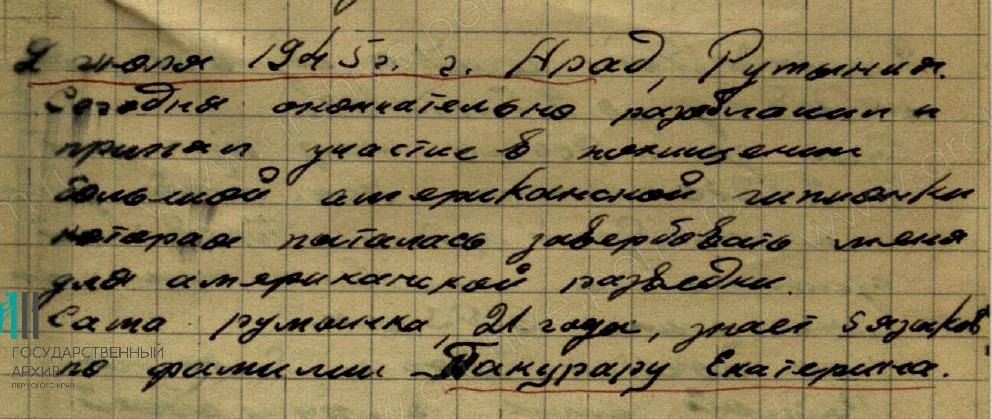 2 июля 1945 г. г. Арад, Румыния.
Сегодня окончательно разоблачил и
принял участие в похищении
большой американской шпионки
которая пыталась завербовать меня
для американской разведки.
Сама румынка, 21 года, знает 5 языков,
по фамилии Пакурару Екатерина.
ГОСУДАРСТВЕННЫЙ
АРХИВ
ПЕРМСКОГО КРАЯ